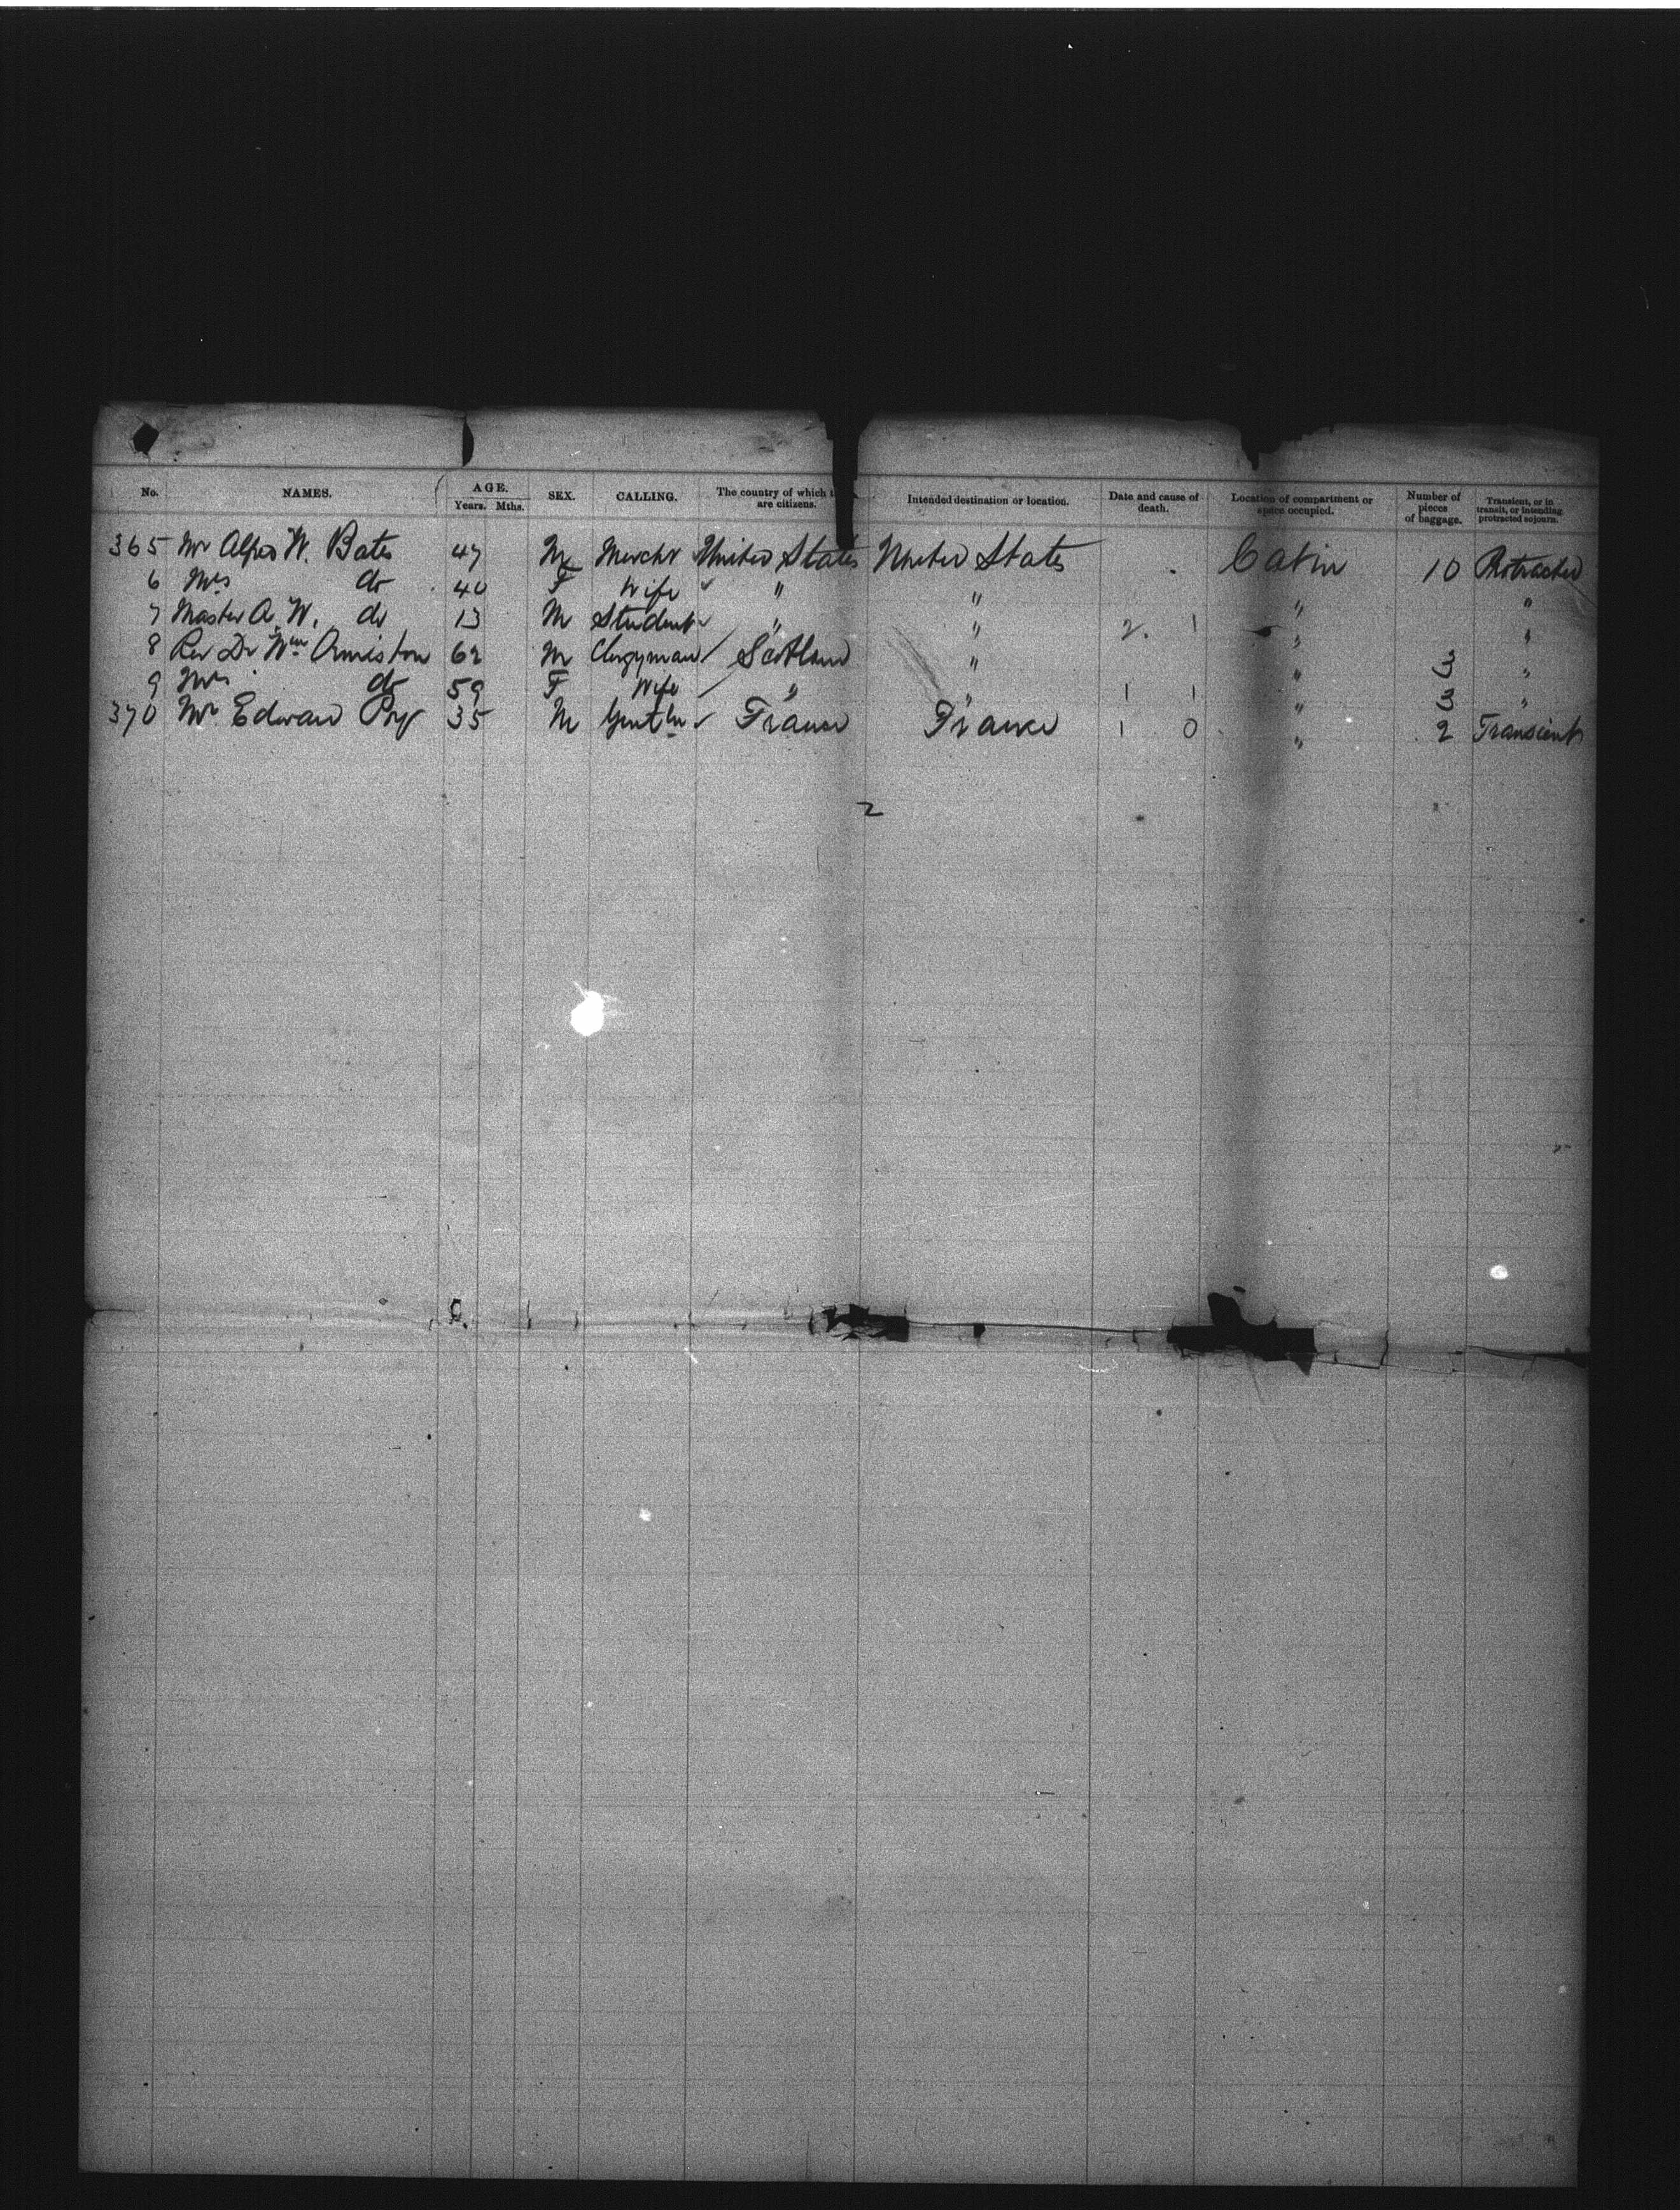 No. NAMES. AGE. Years. Mths. SEX. CALLING. The country of which are citizens. Intended destination or location. Date and cause of death. Location of compartment or space occupied. Number of pieces of baggage. Transient, or in transit, or intending protracted sojourn.
365 Mr Alfred W. Bates 47 M Mercht United States United States Cabin 10 Protracted
6 Mrs do 40 F Wife " " " "
7 Master A. W. do 13 M Student " " 2. 1 " "
8 Rev Dr Wm Ormiston 62 M Clergyman Scotland " " 3 "
9 Mrs do 59 F Wife " " 1 1 " 3 "
370 Mr Edward 35 M Gentln France France 1 0 " 2 Transient
2